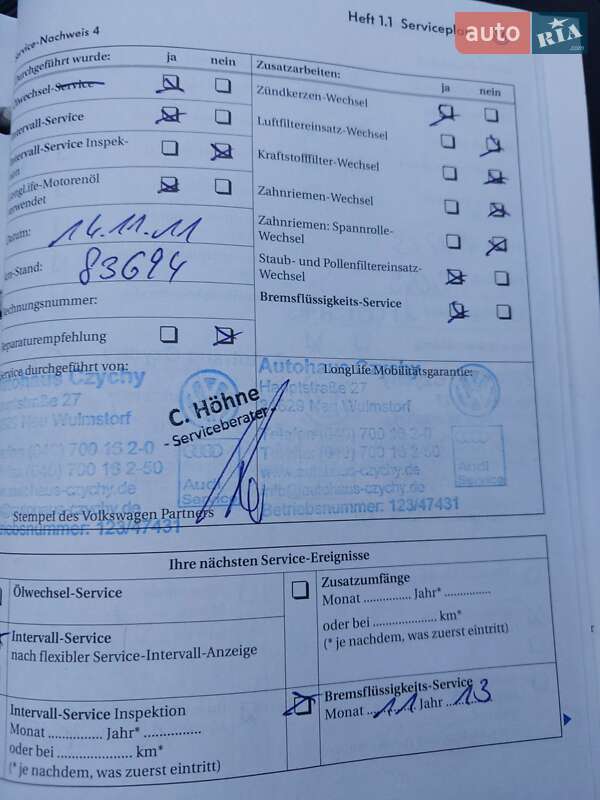 Service-Nachweis 4
Heft 1.1 Serviceplan
auto RIA .com
Durchgeführt wurde: ja nein
Ölwechsel-Service
Intervall-Service
Intervall-Service Inspek-
LongLife-Motorenöl
Datum: 14.11.11
83694
Rechnungsnummer:
Reparaturempfehlung
Zusatzarbeiten: ja nein
Zündkerzen-Wechsel
Luftfiltereinsatz-Wechsel
Kraftstofffilter-Wechsel
Zahnriemen-Wechsel
Zahnriemen: Spannrolle-
Wechsel
Staub- und Pollenfiltereinsatz-
Wechsel
Bremsflüssigkeits-Service
Service durchgeführt von:
Autohaus Czychy
Hauptstraße 27
Neu Wulmstorf
(040) 700 16 2-0
(040) 700 16 2-50
www.autohaus-czychy.de
info@autohaus-czychy.de
Audi
Service
Betriebsnummer: 123/47431
C. Höhne
- Serviceberater -
Stempel des Volkswagen Partners
LongLife Mobilitätsgarantie:
Autohaus Czychy
Hauptstraße 27
Neu Wulmstorf
Telefon (040) 700 16 2-0
Telefax (040) 700 16 2-50
www.autohaus-czychy.de
info@autohaus-czychy.de
Audi
Service
Betriebsnummer: 123/47431
Ihre nächsten Service-Ereignisse
Ölwechsel-Service
Intervall-Service
nach flexibler Service-Intervall-Anzeige
Intervall-Service Inspektion
Monat ............. Jahr* ...............
oder bei ..................... km*
(* je nachdem, was zuerst eintritt)
Zusatzumfänge
Monat ............. Jahr* ..............
oder bei .................. km*
(* je nachdem, was zuerst eintritt)
Bremsflüssigkeits-Service
Monat 11 Jahr 13